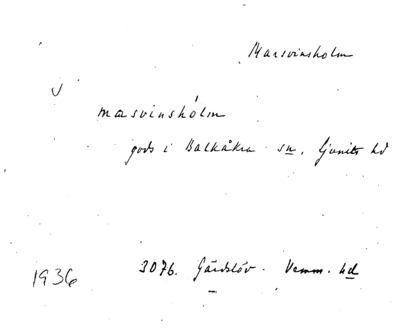 Marsvinsholm
marsvinshólm
gods i Balkåkra sn. Ljunits hd
3076. Gärdslöv. Vemm. hd
1936